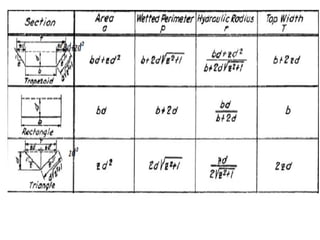 Section
Area
a
Wetted Perimeter
p
Hydraulic Radius
r
Top Width
T
T
d
b
Trapezoid
bd+zd²
b+2d√z²+1
bd+zd²
b+2d√z²+1
b+2zd
d
b
Rectangle
bd
b+2d
bd
b+2d
b
Triangle
zd²
2d√z²+1
zd
2√z²+1
2zd